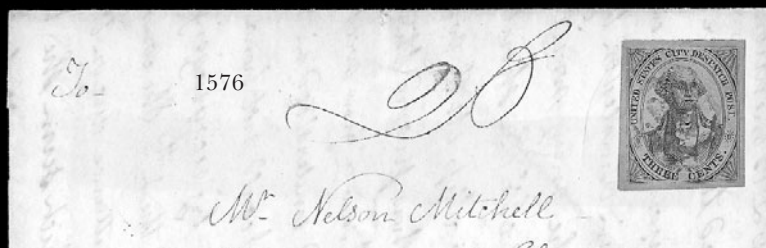 To
1576
28
UNITED STATES CITY DESPATCH POST.
THREE CENTS.
Mr Nelson Mitchell